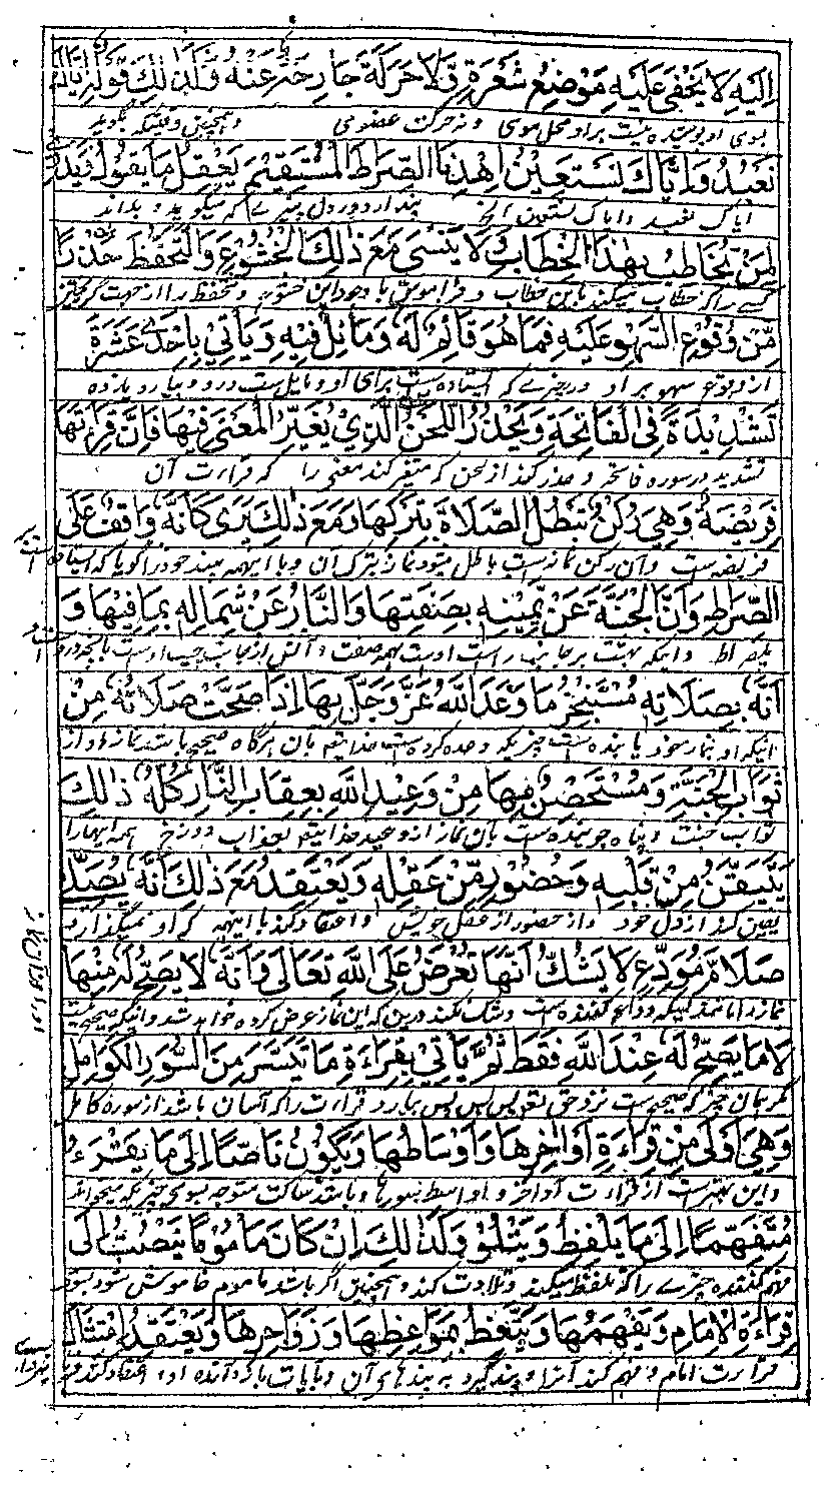 اِلَيْهِ لَا يَخْفٰى عَلَيْهِ مَوْضِعُ شَعْرَةٍ وَّلَا حَرَكَةُ جَارِحَةٍ عَنْهُ وَكَذٰلِكَ قَوْلُهٗ اِيَّاكَ
بسوی او پوشیده نیست بر او محل موی و نه حرکت عضوی و همچنین وقتیکه بگوید
نَعْبُدُ وَاِيَّاكَ نَسْتَعِيْنُ اِهْدِنَا الصِّرَاطَ الْمُسْتَقِيْمَ يَعْقِلُ مَا يَقُوْلُ وَيَدْرِيْ
ایاک نعبد و ایاک نستعین الخ پندارد در دل چیزے که میگوید و بداند
لِمَنْ يُّخَاطِبُ بِهٰذَا الْخِطَابِ لَا يَنْسٰى مَعَ ذٰلِكَ الْخُشُوْعَ وَالتَّحَفُّظَ حَذَرًا
کسے را که خطاب میکند باین خطاب و فراموش با وجود این خشوع و تحفظ را از جهت
مِّنْ وُّقُوْعِ السَّهْوِ عَلَيْهِ فِمَا هُوَ قَائِمٌ لَهٗ وَمَائِلٌ فِيْهِ وَيَأْتِيْ بِاِحْدٰى عَشَرَةَ
از وقوع سهو بر او در چیزے که استاده است برای او و مایل ست در و و بیارد یازده
تَشْدِيْدَةً فِى الْفَاتِحَةِ وَيَحْذَرُ اللَّحْنَ الَّذِيْ يُغَيِّرُ الْمَعْنٰى فِيْهَا فَاِنَّ قِرَاءَتَهَا
تشدید در سوره فاتحه و حذر کند از لحن که متغیر کند معنی را که قراءت آن
فَرِيْضَةٌ وَهِيَ رُكْنٌ تَبْطُلُ الصَّلَاةُ بِتَرْكِهَا وَمَعَ ذٰلِكَ يَرٰى كَاَنَّهٗ وَاقِفٌ عَلَى
فریضه ست و آن رکن نماز ست باطل میشود نماز بترک آن و با اینهمه بیند خود را گویا که استاده است
الصِّرَاطِ وَاَنَّ الْجَنَّةَ عَنْ يَّمِيْنِهٖ بِصِفَتِهَا وَالنَّارَ عَنْ شِمَالِهٖ بِمَا فِيْهَا وَ
بصراط و اینکه بهشت بر جانب راست اوست بهمه صفت و آتش از جانب چپ اوست بآنچه در وست
اَنَّهٗ بِصَلَاتِهٖ مُسْتَنْجِزٌ مَا وَعَدَ اللّٰهُ عَزَّ وَجَلَّ بِهَا اِذَا صَحَّتْ صَلَاتُهٗ مِنْ
اینکه او بنماز خود یابنده ست چیزیکه وعده کرده ست خدایتع بآن هرگاه صحیح باشد نماز او از
ثَوَابِ الْجَنَّةِ وَمُسْتَحْصِنٌ فِيْهَا مِنْ وَعِيْدِ اللّٰهِ بِعِقَابِ النَّارِ كُلُّهٗ ذٰلِكَ
ثواب جنت و پناه جوینده ست بآن نماز از وعید خدایتع بعذاب دوزخ همه اینها را
يَتَيَقَّنُ مِنْ قَلْبِهٖ وَحُضُوْرٍ مِّنْ عَقْلِهٖ وَيَعْتَقِدُ مَعَ ذٰلِكَ اَنَّهٗ يُصَلِّيْ
یقین کند از دل خود و از حضور از عقل خویش و اعتقاد کند با اینهمه که او میگذارد
صَلَاةَ مُوَدِّعٍ لَا يَشُكُّ اَنَّهَا تُعْرَضُ عَلَى اللّٰهِ تَعَالٰى وَاَنَّهٗ لَا يَصِحُّ لَهٗ مِنْهَا
نماز را مانند کسیکه وداع کننده ست و شک نکند درین که این نماز عرض کرده خواهد شد و اینکه صحیح نیست
اِلَّا مَا يَصِحُّ لَهٗ عِنْدَ اللّٰهِ فَقَطْ ثُمَّ يَأْتِيْ بِقِرَاءَةِ مَا تَيَسَّرَ مِنَ السُّوَرِ الْكَوَامِلِ
مگر همان چیز که صحیح ست نزد حق تعالی پس پس بیارد قراءت را که آسان باشد از سوره کامل
وَهِيَ اَوْلٰى مِنْ قِرَاءَةِ اَوَاخِرِهَا وَاَوْسَاطِهَا وَيَكُوْنُ نَاصِتًا اِلٰى مَا يَقْرَءُ
و این بهتر ست از قراءت اواخر و اواسط سورها و باشد ساکت متوجه بسوی چیزیکه میخواند
مُتَفَهِّمًا اِلٰى مَا يَلْفِظُ وَيَتْلُوْ وَكَذٰلِكَ اِنْ كَانَ مَأْمُوْمًا يَنْصُتُ اِلٰى
فهم کننده چیزے را که تلفظ میکند و تلاوت کند و همچنین اگر باشد ماموم خاموش شود بسوی
قِرَاءَةِ الْاِمَامِ وَيَفْهَمُهَا وَيَتَّعِظُ بِمَوَاعِظِهَا وَزَوَاجِرِهَا وَيَعْتَقِدُ اِمْتِثَالَ
قراءت امام و فهم کند آنرا و پند گیرد به پندهای آن و بآیات بازدارنده او و اعتقاد کند